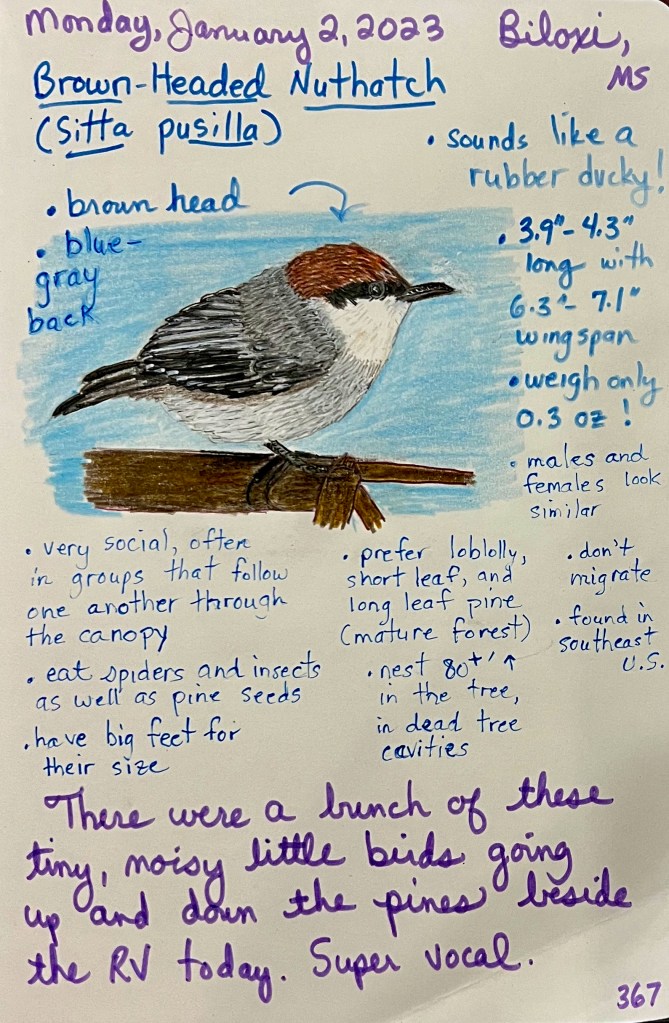 Monday, January 2, 2023 Biloxi, MS
Brown-Headed Nuthatch
(Sitta pusilla)
• sounds like a
rubber ducky!
• brown head
• blue-
gray
back
• 3.9"- 4.3"
long with
6.3"- 7.1"
wingspan
• weigh only
0.3 oz !
• males and
females look
similar
• very social, often
in groups that follow
one another through
the canopy
• eat spiders and insects
as well as pine seeds
• have big feet for
their size
• prefer loblolly,
short leaf, and
long leaf pine
(mature forest)
• nest 80+' ↑
in the tree,
in dead tree
cavities
• don't
migrate
• found in
southeast
U.S.
There were a bunch of these
tiny, noisy little birds going
up and down the pines beside
the RV today. Super vocal.
367